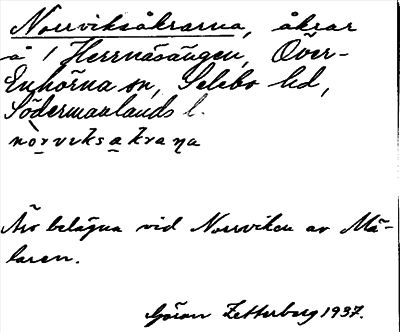 Norrviksåkrarna, åkrar
å 1 Herrnäsängen, Över-
Enhörna sn, Selebo hd,
Södermanlands l.
nòrviksakrana
Äro belägna vid Norrviken av Mä-
laren.
Göran Zetterberg 1937.